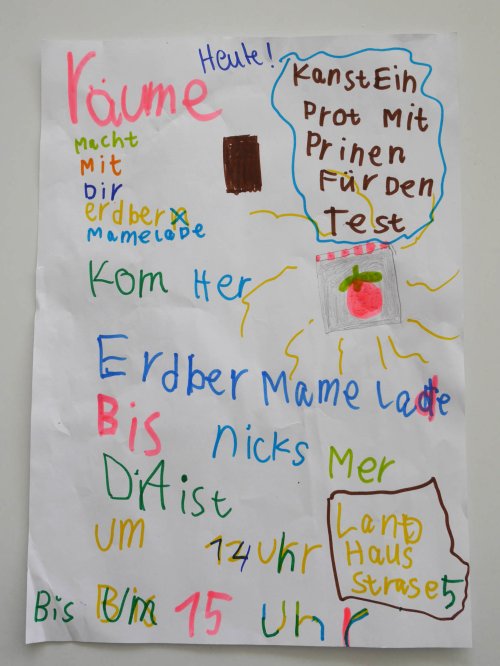 Heute!
räume
macht
mit
Dir
erdber
mamelade
KanstEin
Prot mit
Prinen
Für Den
Test
Kom Her
Erdber Mame lade
Bis nicks Mer
DA ist
um 14 uhr
Lant
Haus
Strase 5
Bis Um 15 uhr